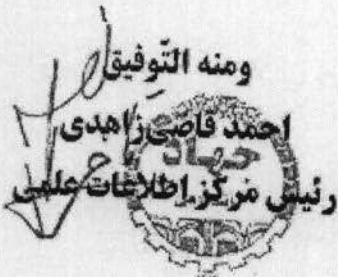 ومنه التّوفیق
احمد قاضی‌زاهدی
جهاد
رئیس مرکز اطلاعات علمی